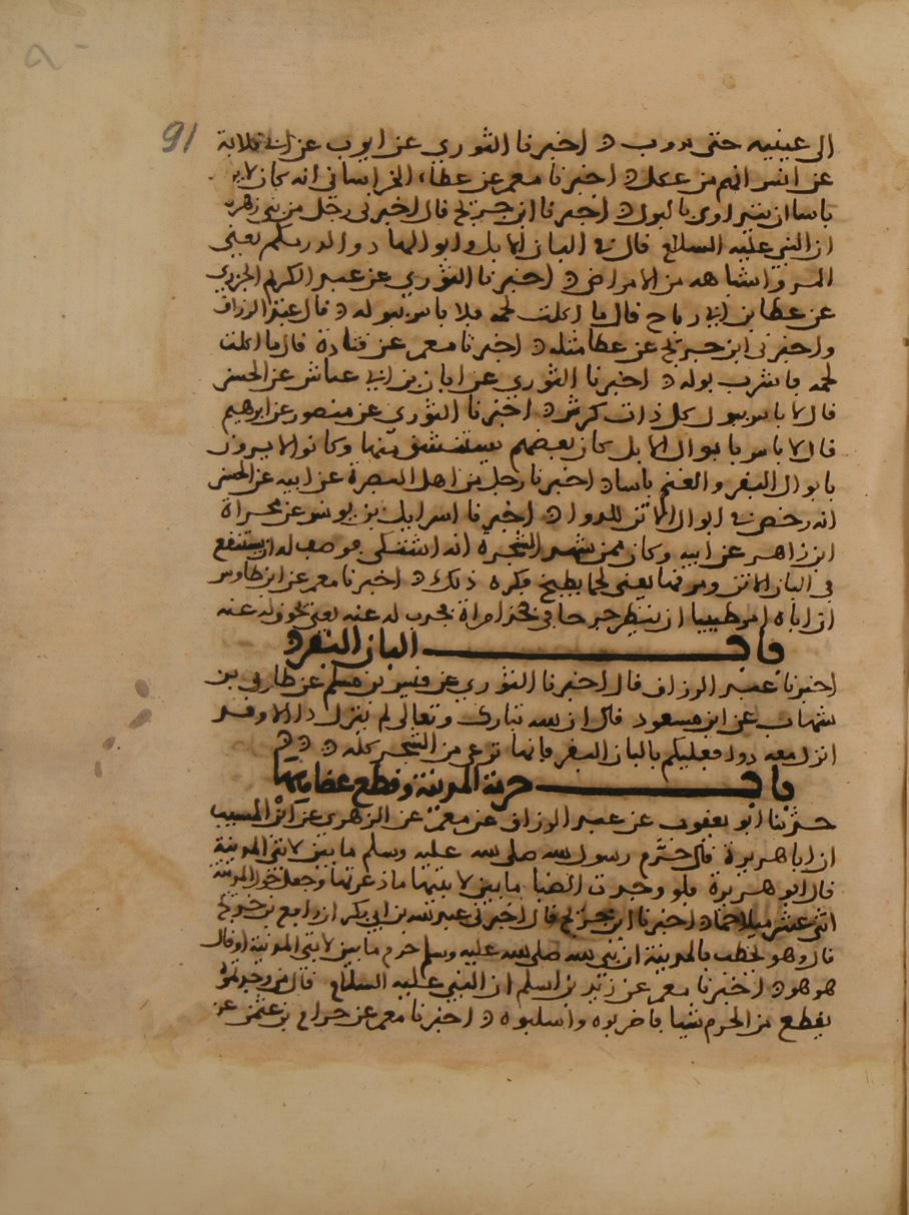 91
الى عينيه حتى هروب ه اخبرنا الثوري عن ايوب عن ابي قلابة
عن انس انهم من عكل ه اخبرنا معمر عن عطاء الخراساني انه كان لا يرى
باسا ان يتداوى بالبول ه اخبرنا ابن جريج قال اخبرني رجل من بني زهرة
ان النبي عليه السلام قال في البان الابل وابوالها دوا لذربكم يعني
المر واشباهه من الامراض ه اخبرنا الثوري عن عبد الكريم الجزري
عن عطا بن ابي رباح قال ما اكلت لحمه فلا باس ببوله ه قال عبد الرزاق
واخبرني ابن جريج عن عطا مثله ه اخبرنا معمر عن قتادة قال ما اكلت
لحمه فاشرب بوله ه اخبرنا الثوري عن ابان بن ابي عياش عن الحسن
قال لا باس ببول كل ذات كرش ه اخبرنا الثوري عن منصور عن ابرهيم
قال لا باس بابوال الابل كان بعضهم يستنشق منها وكانوا لا يرون
بابوال البقر والغنم باسا ه اخبرنا رجل من اهل البصرة عن ابيه عن الحسن
انه رخص في ابوال الاتن للدوا ه اخبرنا اسرايل بن يونس عن مجزاة
ابن زاهر عن ابيه وكان ممن شهد الشجرة انه اشتكى فوصف له ان يستنقع
في البان الاتن ومرقها يعني لحما يطبخ فكره ذلك ه اخبرنا معمر عن ابن طاوس
ان اباه امر طبيبا ان ينظر جرحا في فخذ امراة فجوب له عنه يعني فخوله عنه
باب البان البقر ه
اخبرنا عبد الرزاق قال اخبرنا الثوري عن قيس بن مسلم عن طارق بن
شهاب عن ابن مسعود قال ان الله تبارك وتعالى لم ينزل دا الا وقد
انزل معه دوا فعليكم بالبان البقر فانها ترعى من الشجر كله ه ه ه
باب حرمة المدينة وقطع عضاهها
حدثنا ابو يعقوب عن عبد الرزاق عن معمر عن الزهري عن ابن المسيب
ان ابا هريرة قال حرم رسول الله صلى الله عليه وسلم ما بين لابتي المدينة
قال ابو هريرة فلو وجدت الظبا ما بين لابتيها ما ذعرتها وجعل حول المدينة
اثني عشر ميلا حما ه اخبرنا ابن جريج قال اخبرني عبد الله بن ابي بكر ان رافع بن خديج
قال وهو يخطب بالمدينة ان نبي الله صلى الله عليه وسلم حرم ما بين لابتي المدينة او قال
هو هو ه اخبرنا معمر عن زيد بن اسلم ان النبي عليه السلام قال من وجدتموه
يقطع من الحرم شيا فاضربوه واسلبوه ه اخبرنا معمر عن حرام بن عثمن عن